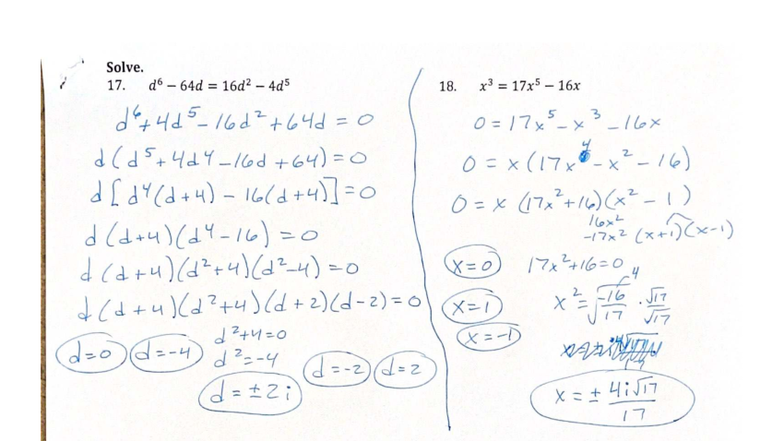 Solve.
17. d⁶ − 64d = 16d² − 4d⁵
d⁶ + 4d⁵ − 16d² + 64d = 0
d(d⁵ + 4d⁴ − 16d + 64) = 0
d[d⁴(d+4) − 16(d+4)] = 0
d(d+4)(d⁴ − 16) = 0
d(d+4)(d²+4)(d²−4) = 0
d(d+4)(d²+4)(d+2)(d−2) = 0
d=0 d=−4 d²+4=0
d²=−4 d=−2 d=2
d = ±2i
18. x³ = 17x⁵ − 16x
0 = 17x⁵ − x³ − 16x
0 = x(17x⁴ − x² − 16)
0 = x (17x²+16)(x² − 1)
16x²
−17x² (x+1)(x−1)
x=0 17x²+16=0
x=1 x² = √−16/17 4 · √17/√17
x=−1
x = ± 4i√17/17